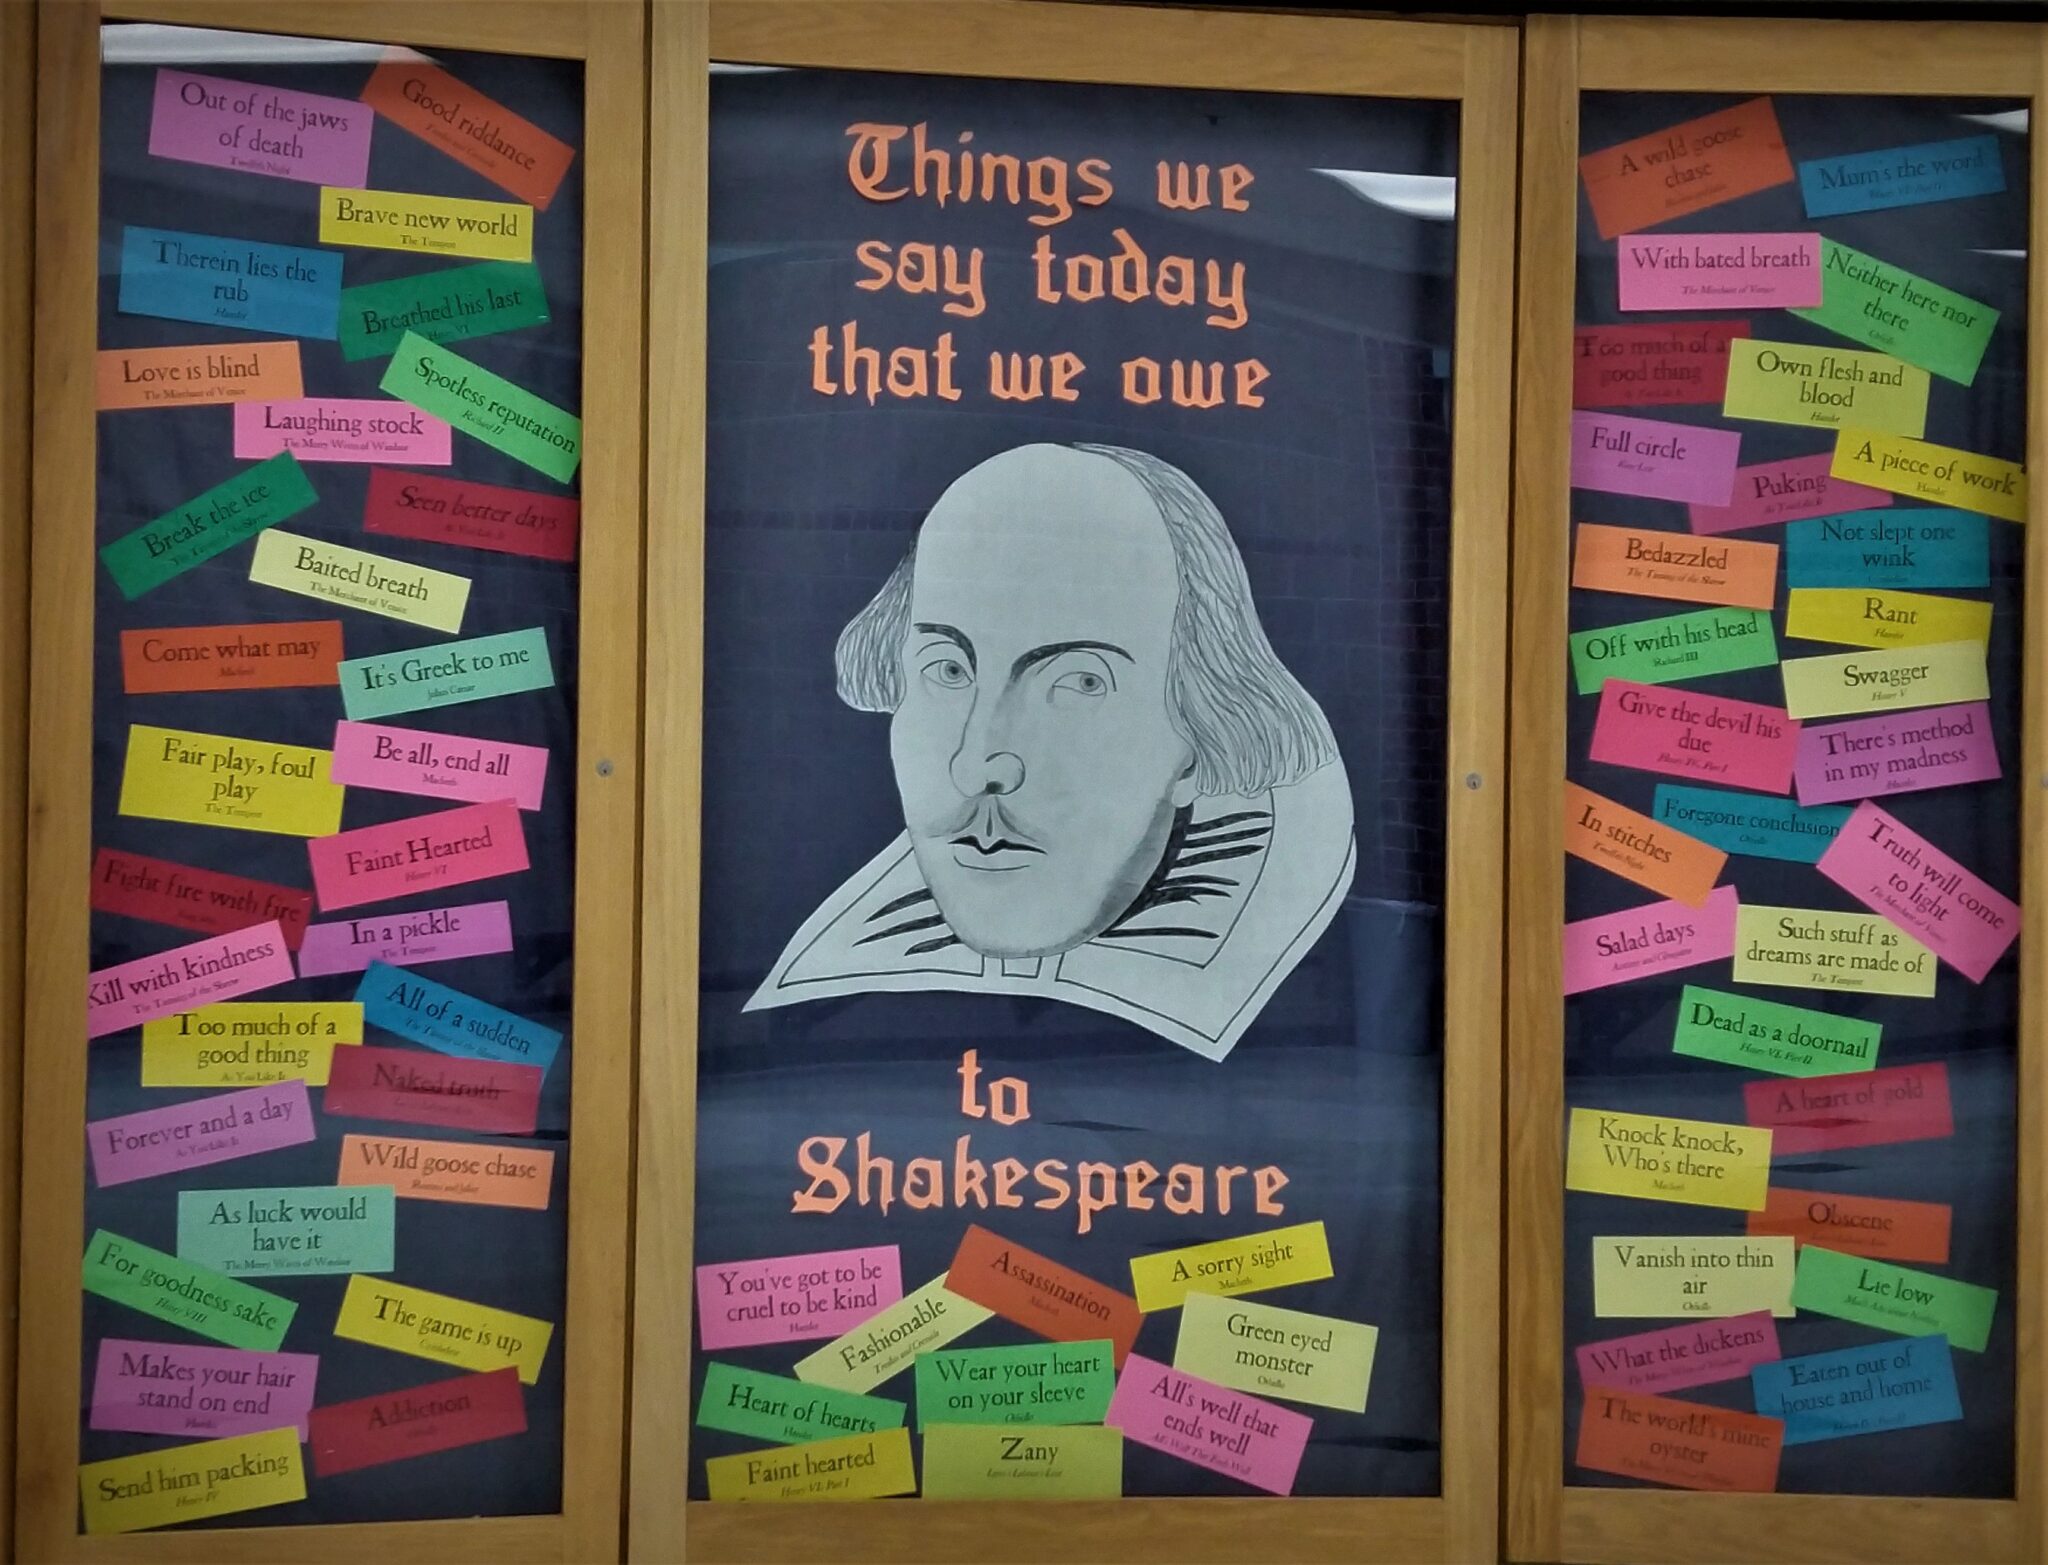 Out of the jaws
of death
Twelfth Night
Good riddance
Brave new world
The Tempest
Therein lies the
rub
Hamlet
Breathed his last
Henry VI
Love is blind
The Merchant of Venice
Spotless reputation
Richard II
Laughing stock
The Merry Wives of Windsor
Break the ice
The Taming of the Shrew
Seen better days
As You Like It
Baited breath
The Merchant of Venice
Come what may
Macbeth
It's Greek to me
Julius Caesar
Fair play, foul
play
The Tempest
Be all, end all
Macbeth
Faint Hearted
Henry VI
Fight fire with fire
In a pickle
The Tempest
Kill with kindness
The Taming of the Shrew
All of a sudden
The Taming of the Shrew
Too much of a
good thing
As You Like It
Naked truth
Forever and a day
As You Like It
Wild goose chase
Romeo and Juliet
As luck would
have it
The Merry Wives of Windsor
For goodness sake
Henry VIII
The game is up
Cymbeline
Makes your hair
stand on end
Hamlet
Addiction
Othello
Send him packing
Henry IV
Things we
say today
that we owe
to
Shakespeare
You've got to be
cruel to be kind
Hamlet
Assassination
Macbeth
A sorry sight
Macbeth
Fashionable
Troilus and Cressida
Green eyed
monster
Othello
Heart of hearts
Hamlet
Wear your heart
on your sleeve
Othello
All's well that
ends well
All's Well That Ends Well
Faint hearted
Henry VI, Part I
Zany
Love's Labour's Lost
A wild goose
chase
Mum's the word
Henry VI, Part II
With bated breath
The Merchant of Venice
Neither here nor
there
Othello
Too much of a
good thing
As You Like It
Own flesh and
blood
Hamlet
Full circle
King Lear
Puking
As You Like It
A piece of work
Hamlet
Bedazzled
The Taming of the Shrew
Not slept one
wink
Cymbeline
Off with his head
Richard III
Rant
Hamlet
Swagger
Henry V
Give the devil his
due
Henry IV, Part I
There's method
in my madness
Hamlet
In stitches
Twelfth Night
Foregone conclusion
Othello
Truth will come
to light
The Merchant of Venice
Salad days
Antony and Cleopatra
Such stuff as
dreams are made of
The Tempest
Dead as a doornail
Henry VI, Part II
A heart of gold
Knock knock,
Who's there
Macbeth
Obscene
Love's Labour's Lost
Vanish into thin
air
Othello
Lie low
Much Ado about Nothing
What the dickens
The Merry Wives of Windsor
Eaten out of
house and home
Henry IV, Part II
The world's mine
oyster
The Merry Wives of Windsor